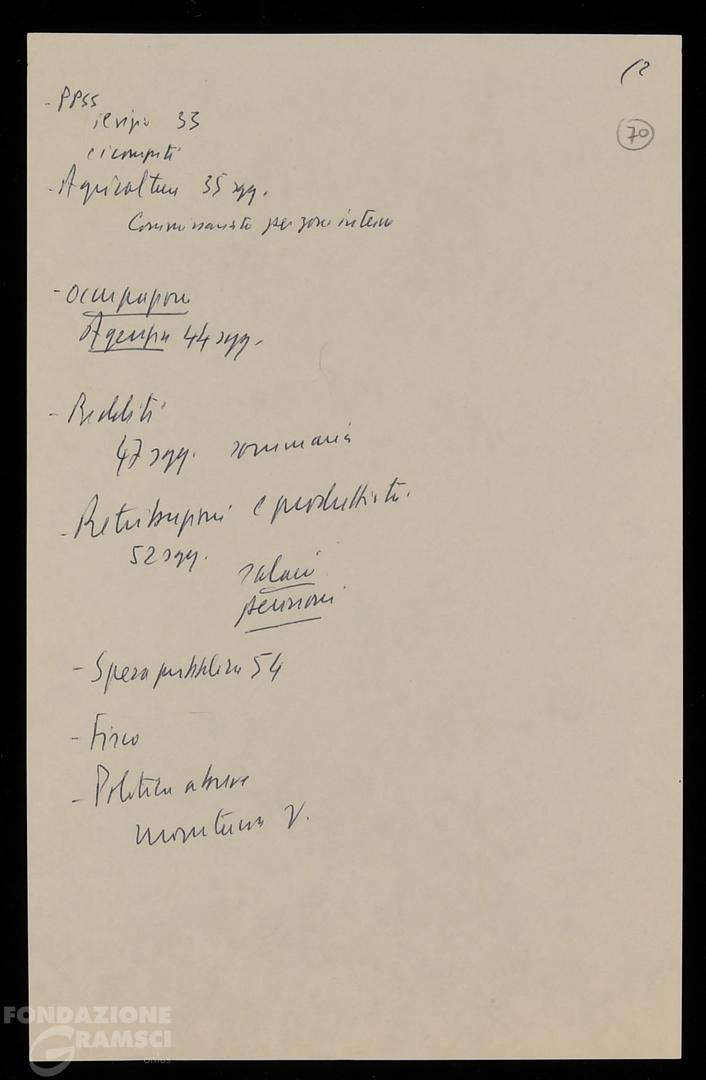 (2
70
- PPSS
33
e i compiti
- Agricoltura 35 sgg.
Commissariato per zone interne
- Occupazione
Agenzia 44 sgg.
- Redditi
47 sgg. sommario
- Retribuzioni e produttività.
52 sgg.
salari
pensioni
- Spesa pubblica 54
- Fisco
- Politica
monetaria
FONDAZIONE
GRAMSCI
onlus